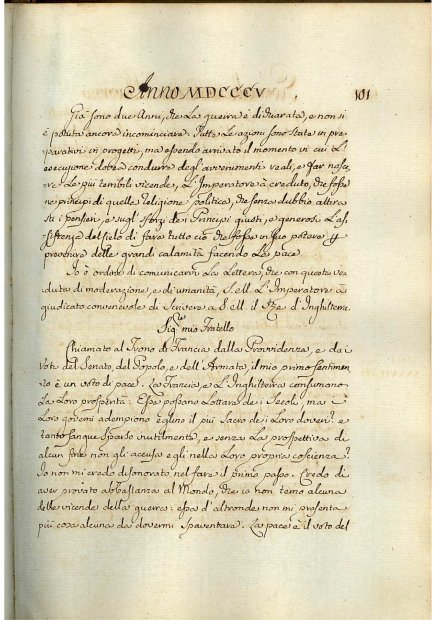 Anno MDCCCV
101
Già sono due Anni, che La guerra è dichiarata, e non si
è potuta ancora incominciare. Tutte Le azioni sono state in pre-
parativi in progetti, ma essendo arrivato il momento in cui L'
esecuzione dobba condurre degl'avvenimenti reali, e far nasce-
re Le più terribili vicende, L'Imperatore à creduto, che fosse
ne principi di quelle religione politica, che senza dubbio attira
sti i pensieri, e sugl'sforzi de Principi giusti, e generosi L'as-
sistenza del Cielo di fare tutto ciò che fosse in suo potere p
provenire delle grandi calamità facendo La pace.
Io ò ordine di comunicarvi La Lettera, che con queste ve-
dute di moderazione, e di umanità, S. ell. L'Imperatore à
giudicato convenevole di Scrivere a S. ell. il d'Inghilterra.
Sig.re mio Fratello
Chiamato al Trono di Francia dalla Provvidenza, e dai
Voti del Senato, del Popolo, e dell'Armata, il mio primo sentimen-
to è un voto di pace. La Francia, e L'Inghilterra consumano
La Loro prosperità: Esse possono Lottare de i Secoli, ma i
Loro governi adempiono eglino il più Sacro de i Loro doveri? e
tanto sangue sparso inutilmente, e senza La prospettiva di
alcun fine non gli accusa egli nella Loro propria coscienza?
Io non mi credo disonorato nel fare il primo passo. Credo di
aver provato abbastanza al Mondo, che io non temo alcuna
delle vicende della guerra: essa d'altronde non mi presenta
più cosa alcuna da dovermi Spaventare. La pace è il voto del